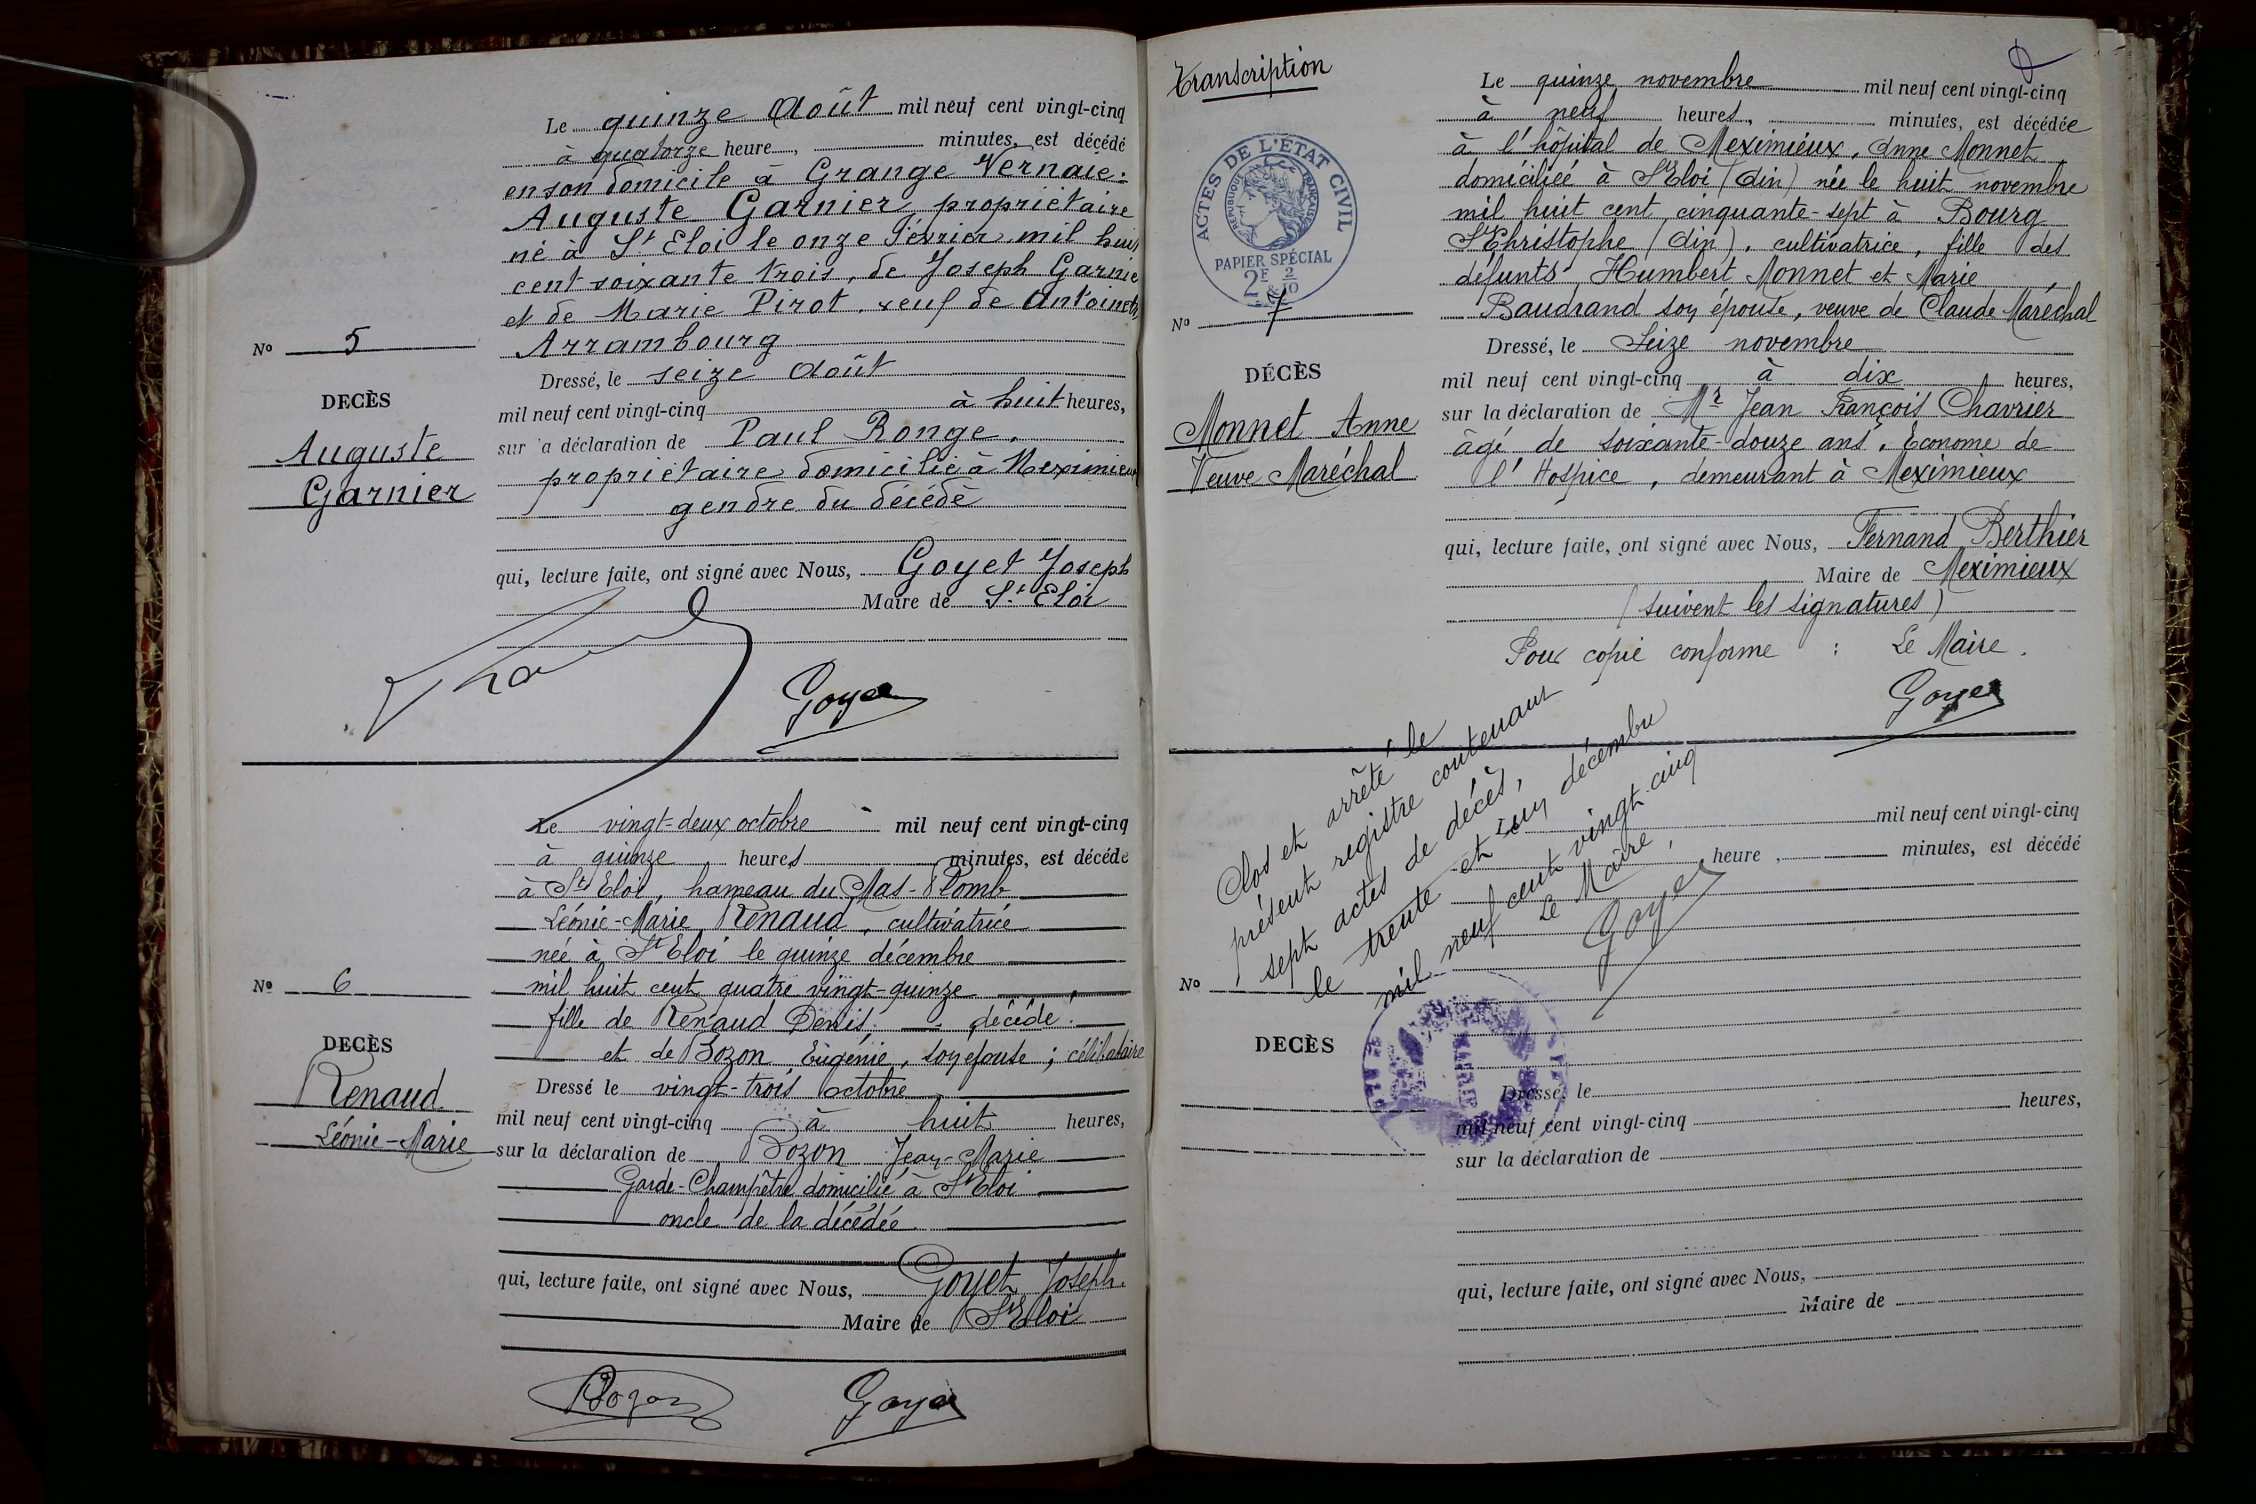 Le quinze Août mil neuf cent vingt-cinq
à quatorze heure, minutes, est décédé
en son domicile à Grange Vernaie.
Auguste Garnier, propriétaire
né à St Eloi le onze février mil huit
cent soixante trois, de Joseph Garnie
et de Marie Pirot, veuf de Antoinette
Nº 5
Arrambourg
Dressé, le seize Août
DECÈS
mil neuf cent vingt-cinq à huit heures,
Auguste
Garnier
sur la déclaration de Paul Ronge,
propriétaire domicilié à Meximieux
gendre du décédé
qui, lecture faite, ont signé avec Nous, Goyet Joseph
Maire de St Eloi
Goyet
Le vingt-deux octobre mil neuf cent vingt-cinq
à quinze heures minutes, est décédé
à St Eloi, hameau du Mas-Plomb
Léonie-Marie Renaud, cultivatrice
née à St Eloi le quinze décembre
Nº 6
mil huit cent quatre vingt-quinze
fille de Renaud Denis, décédé
DECÈS
et de Bozon Eugénie, son épouse ; célibataire
Renaud
Léonie-Marie
Dressé le vingt-trois octobre
mil neuf cent vingt-cinq à huit heures,
sur la déclaration de Bozon Jean-Marie
Garde-Champêtre domicilié à St Eloi
oncle de la décédée
qui, lecture faite, ont signé avec Nous, Goyet Joseph
Maire de St Eloi
Bozon Goyet
Transcription
ACTES DE L'ÉTAT CIVIL
RÉPUBLIQUE FRANÇAISE
PAPIER SPÉCIAL
2F & 2/10
Nº 7
DÉCÈS
Monnet Anne
Veuve Maréchal
Le quinze novembre mil neuf cent vingt-cinq
à neuf heures, minutes, est décédée
à l'hôpital de Meximieux, Anne Monnet
domiciliée à St Eloi (Ain) née le huit novembre
mil huit cent cinquante-sept à Bourg
St Christophe (Ain), cultivatrice, fille des
défunts Humbert Monnet et Marie
Baudrand son épouse, veuve de Claude Maréchal
Dressé, le Seize novembre
mil neuf cent vingt-cinq à dix heures,
sur la déclaration de Mr Jean François Chavrier
âgé de soixante-douze ans, Econome de
l'Hospice, demeurant à Meximieux
qui, lecture faite, ont signé avec Nous, Fernand Berthier
Maire de Meximieux
(suivent les signatures)
Pour copie conforme : Le Maire.
Goyet
Clos et arrêté le
présent registre contenant
sept actes de décès,
le trente et un décembre
mil neuf cent vingt cinq
Le Maire,
Goyet
mil neuf cent vingt-cinq
heure, minutes, est décédé
Nº
DECÈS
MAIRIE
Dressé, le
mil neuf cent vingt-cinq heures,
sur la déclaration de
qui, lecture faite, ont signé avec Nous,
Maire de